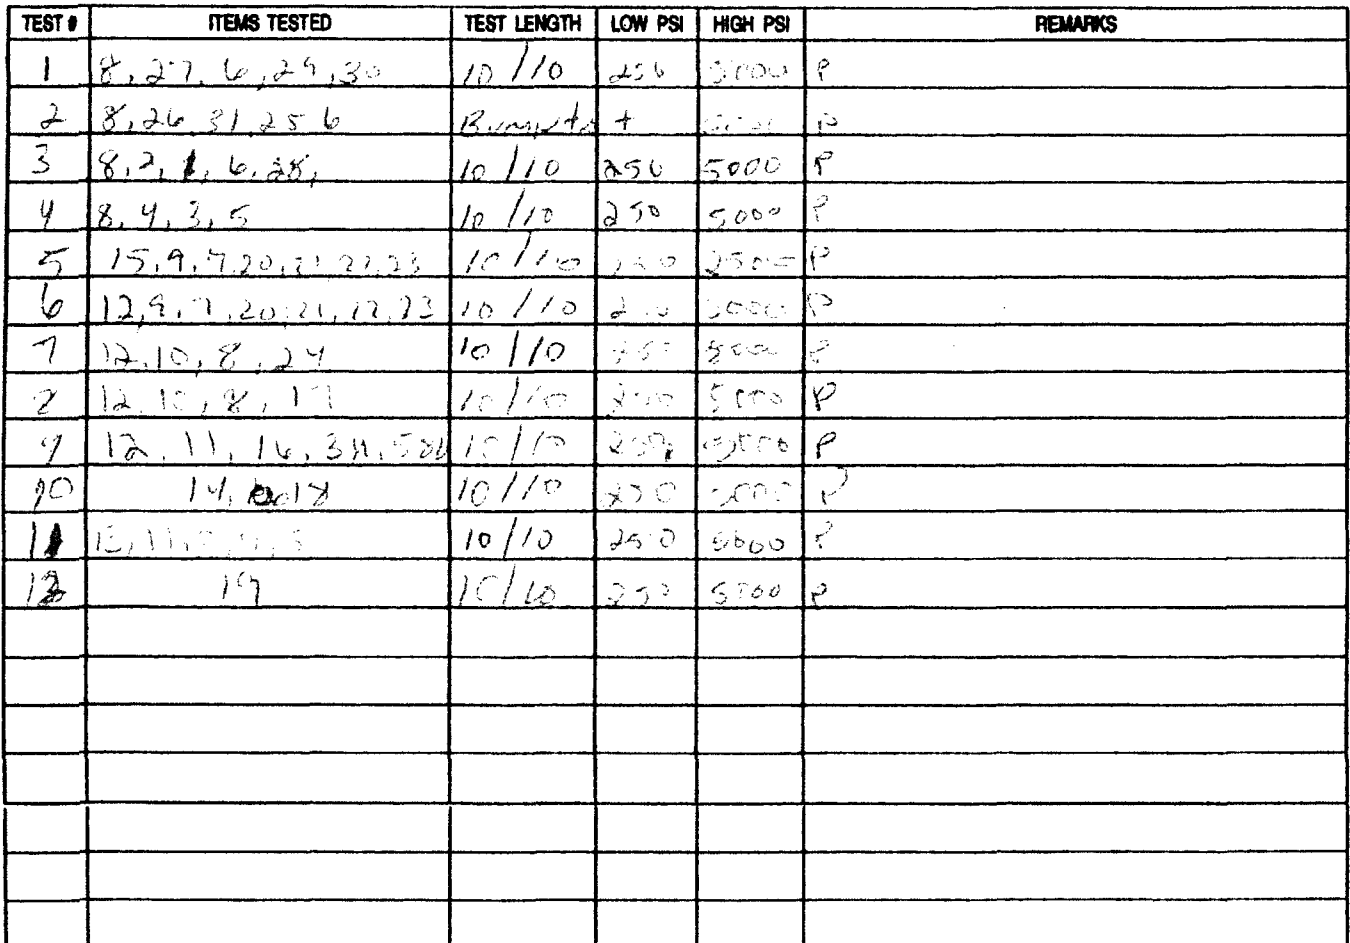 TEST # ITEMS TESTED TEST LENGTH LOW PSI HIGH PSI REMARKS
1 8, 27, 6, 29, 30 10/10 250 5000 P
2 8, 26 31 25 6 P
3 8, 2, 1, 6, 28, 10/10 250 5000 P
4 8, 4, 3, 5 10/10 250 5000 P
5 15, 9, 7, 20, 21, 22, 23 10/10 P
6 12, 9, 7, 20, 21, 22, 23 10/10 P
7 12, 10, 8, 24 10/10 P
12, 10, 8, 10/10 5000 P
9 12, 11, 16, 10/10 P
10 14, 18 10/10 250 5000 P
11 10/10 250 5000 P
12 19 10/10 250 5000 P